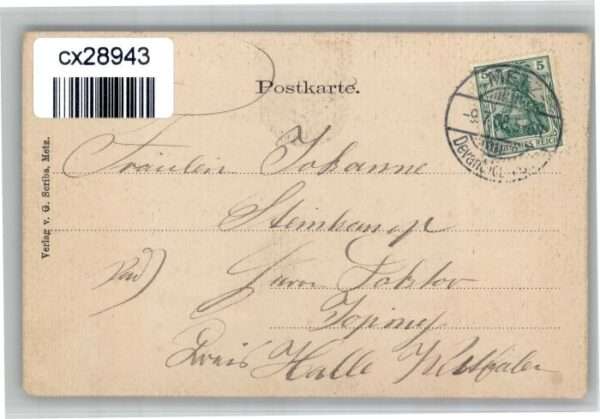 cx28943
Postkarte.
5 5
METZ
DEUTSCHES REICH
Verlag v. G. Scriba, Metz.
Fräulein Johanne
Steinkamp
Herrn Doktor
Kreis Halle Westfalen